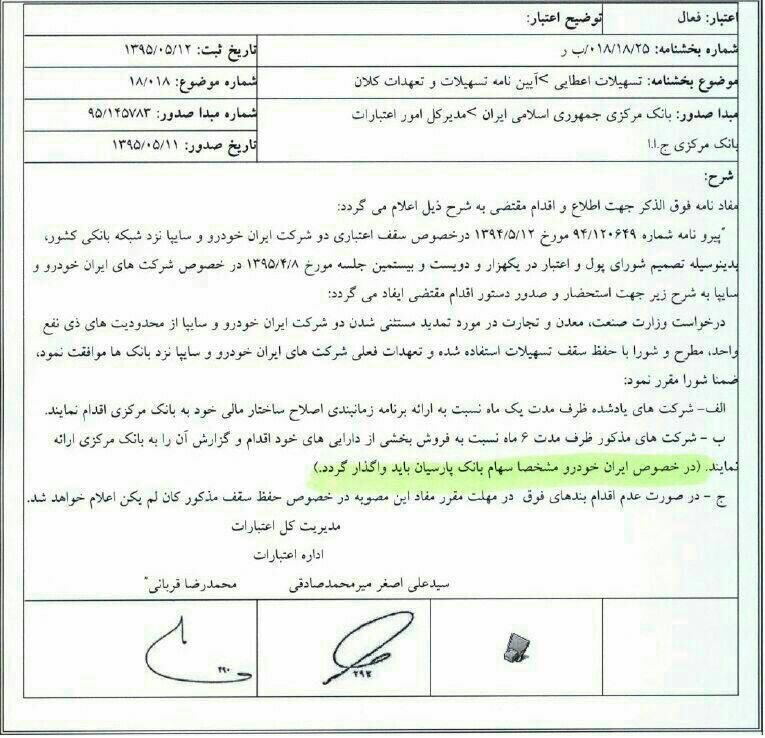 اعتبار: فعال توضیح اعتبار:
شماره بخشنامه: ۰۱۸/۱۸/۲۵/ب ر تاریخ ثبت: ۱۳۹۵/۰۵/۱۲
موضوع بخشنامه: تسهیلات اعطایی >آیین نامه تسهیلات و تعهدات کلان شماره موضوع: ۱۸/۰۱۸
مبدا صدور: بانک مرکزی جمهوری اسلامی ایران >مدیرکل امور اعتبارات شماره مبدا صدور: ۹۵/۱۴۵۷۸۳
بانک مرکزی ج.ا.ا تاریخ صدور: ۱۳۹۵/۰۵/۱۱
شرح:
مفاد نامه فوق الذکر جهت اطلاع و اقدام مقتضی به شرح ذیل اعلام می گردد:
"پیرو نامه شماره ۹۴/۱۲۰۶۴۹ مورخ ۱۳۹۴/۵/۱۲ درخصوص سقف اعتباری دو شرکت ایران خودرو و سایپا نزد شبکه بانکی کشور،
بدینوسیله تصمیم شورای پول و اعتبار در یکهزار و دویست و بیستمین جلسه مورخ ۱۳۹۵/۴/۸ در خصوص شرکت های ایران خودرو و
سایپا به شرح زیر جهت استحضار و صدور دستور اقدام مقتضی ایفاد می گردد:
درخواست وزارت صنعت، معدن و تجارت در مورد تمدید مستثنی شدن دو شرکت ایران خودرو و سایپا از محدودیت های ذی نفع
واحد، مطرح و شورا با حفظ سقف تسهیلات استفاده شده و تعهدات فعلی شرکت های ایران خودرو و سایپا نزد بانک ها موافقت نمود،
ضمنا شورا مقرر نمود:
الف- شرکت های یادشده ظرف مدت یک ماه نسبت به ارائه برنامه زمانبندی اصلاح ساختار مالی خود به بانک مرکزی اقدام نمایند.
ب - شرکت های مذکور ظرف مدت ۶ ماه نسبت به فروش بخشی از دارایی های خود اقدام و گزارش آن را به بانک مرکزی ارائه
نمایند. (در خصوص ایران خودرو مشخصا سهام بانک پارسیان باید واگذار گردد.)
ج - در صورت عدم اقدام بندهای فوق در مهلت مقرر مفاد این مصوبه در خصوص حفظ سقف مذکور کان لم یکن اعلام خواهد شد.
مدیریت کل اعتبارات
اداره اعتبارات
سیدعلی اصغر میرمحمدصادقی محمدرضا قربانی"
۲۹۳ ۲۹۰